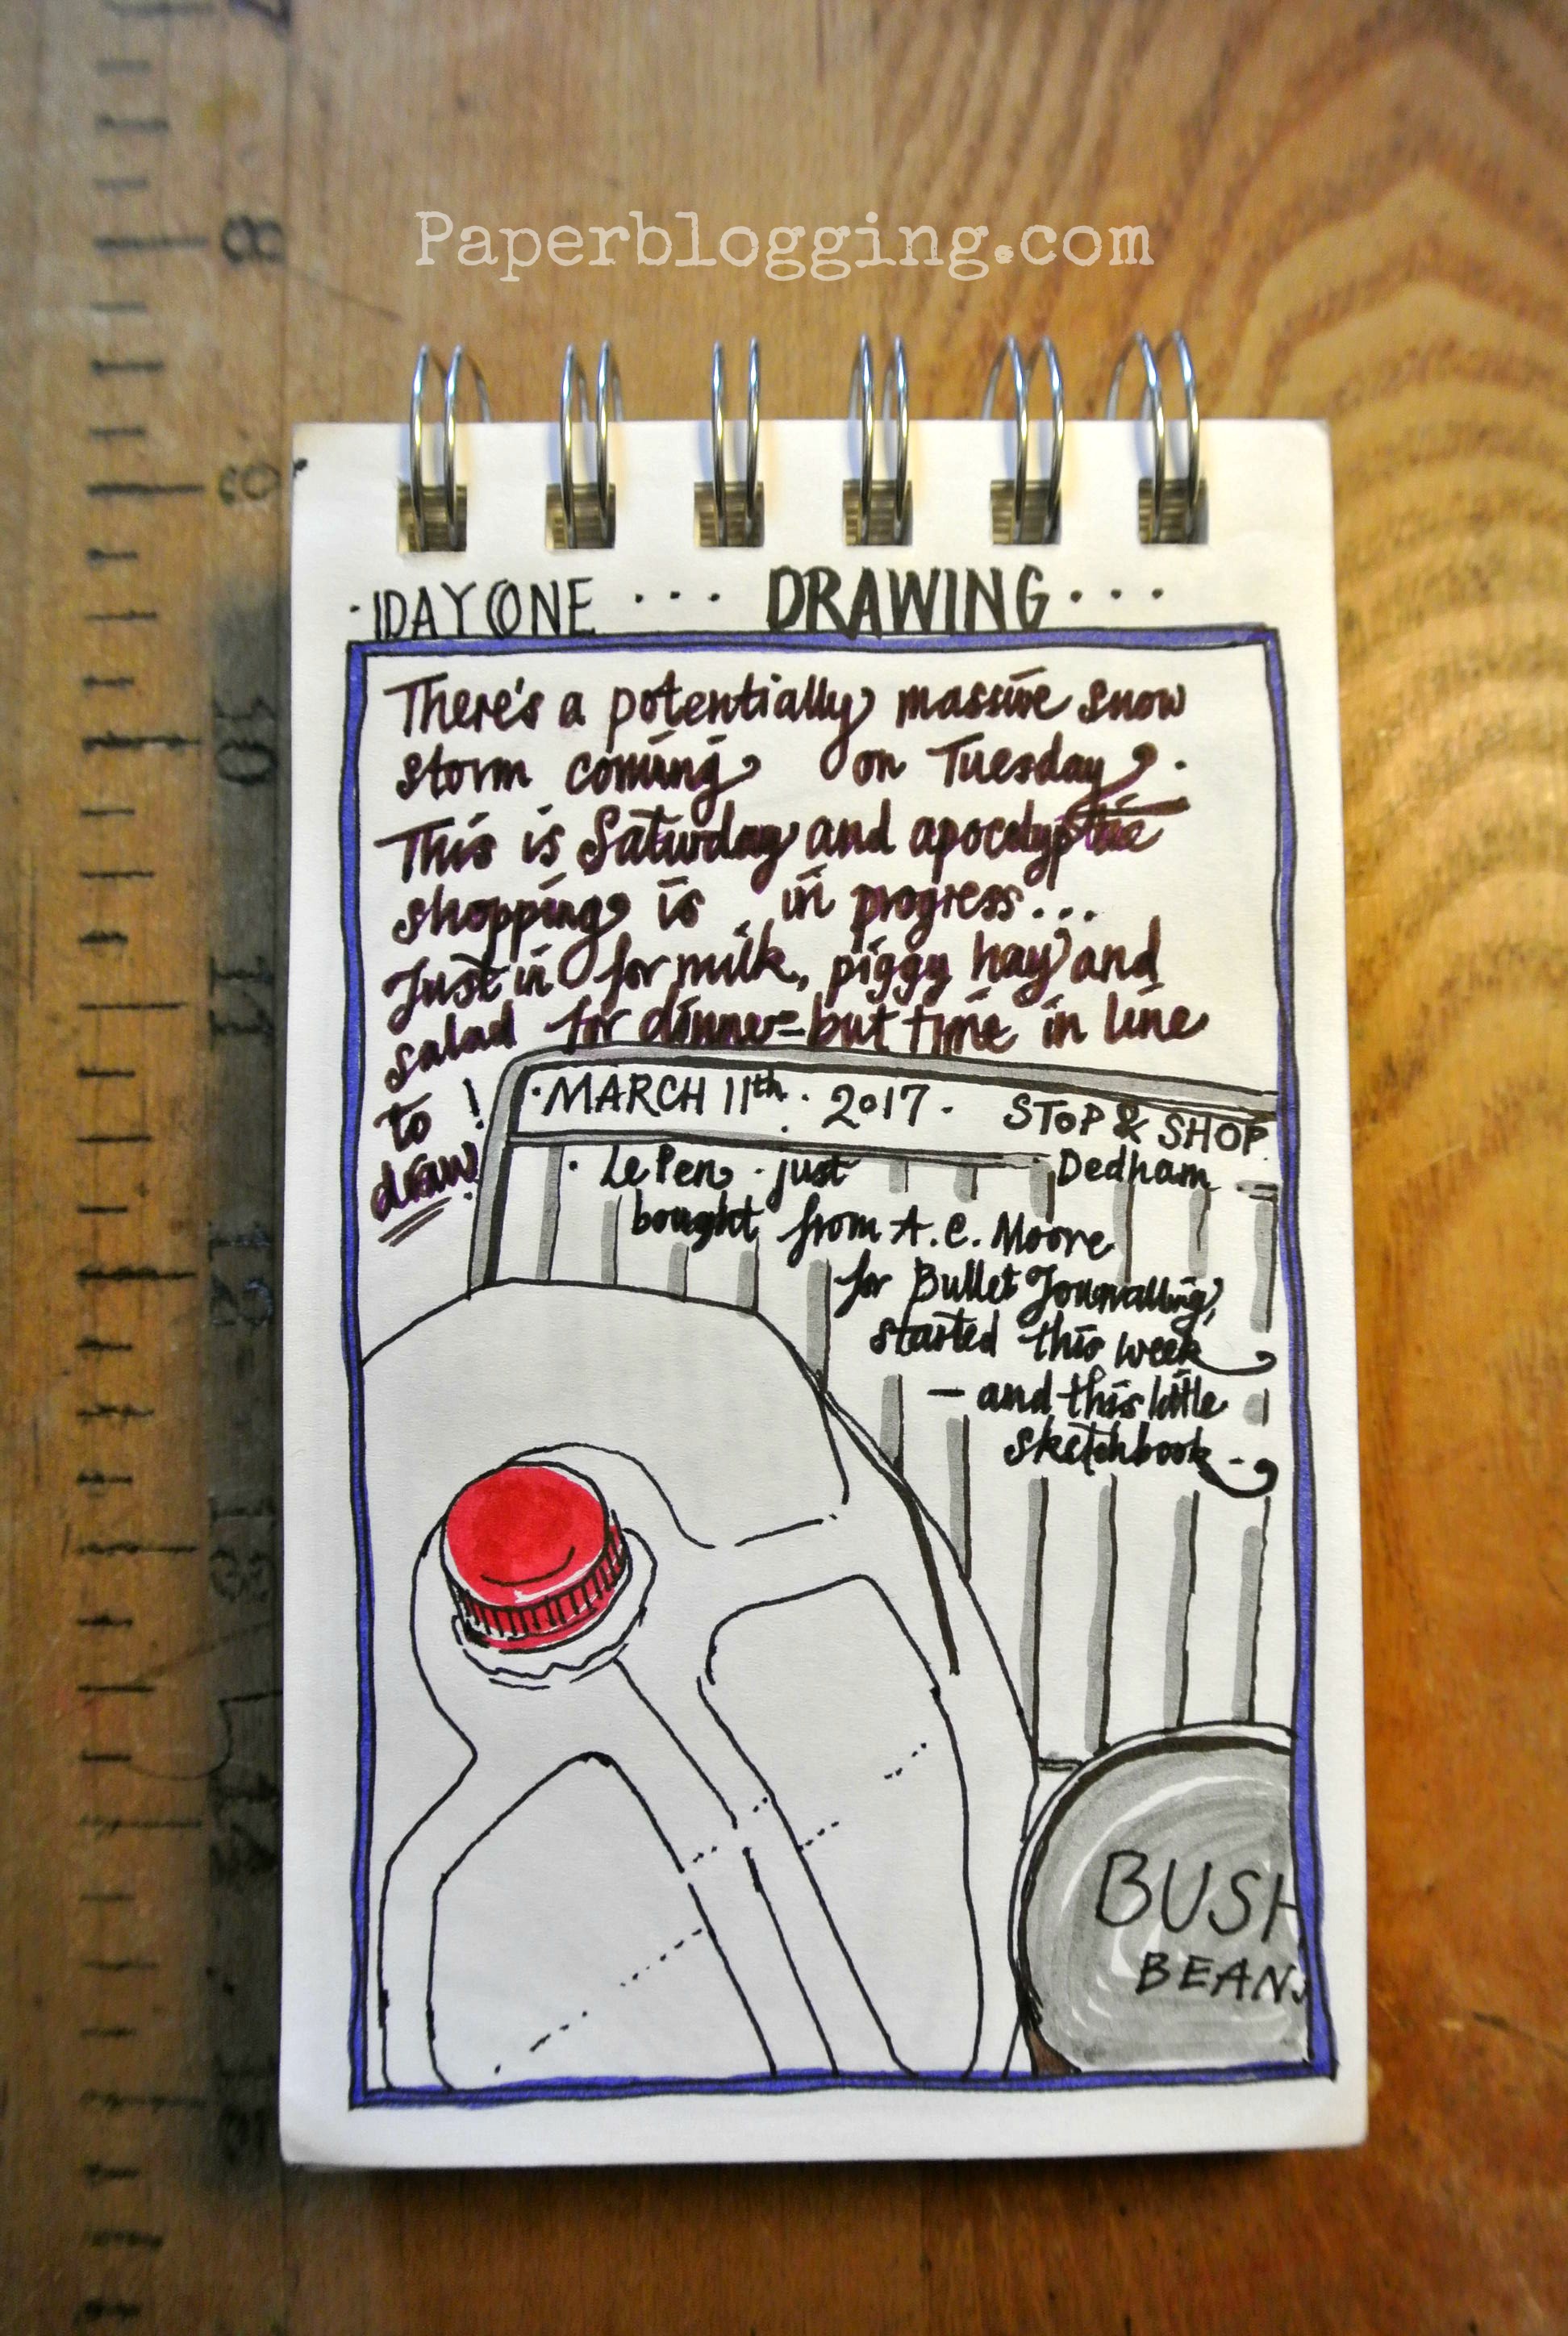 Paperblogging.com
7
8
9
10
11
12
13
14
15
·1DAYONE ··· DRAWING···
There's a potentially massive snow
storm coming on Tuesday.
This is Saturday and apocalyptic
shopping is in progress...
Just in for milk, piggy hay and
salad for dinner - but time in line
to !
draw!
·MARCH 11th. 2017. STOP & SHOP.
Dedham
· Le Pen · just
bought from A.C. Moore
for Bullet Journalling,
started this week
— and this little
sketchbook -
BUSH
BEANS